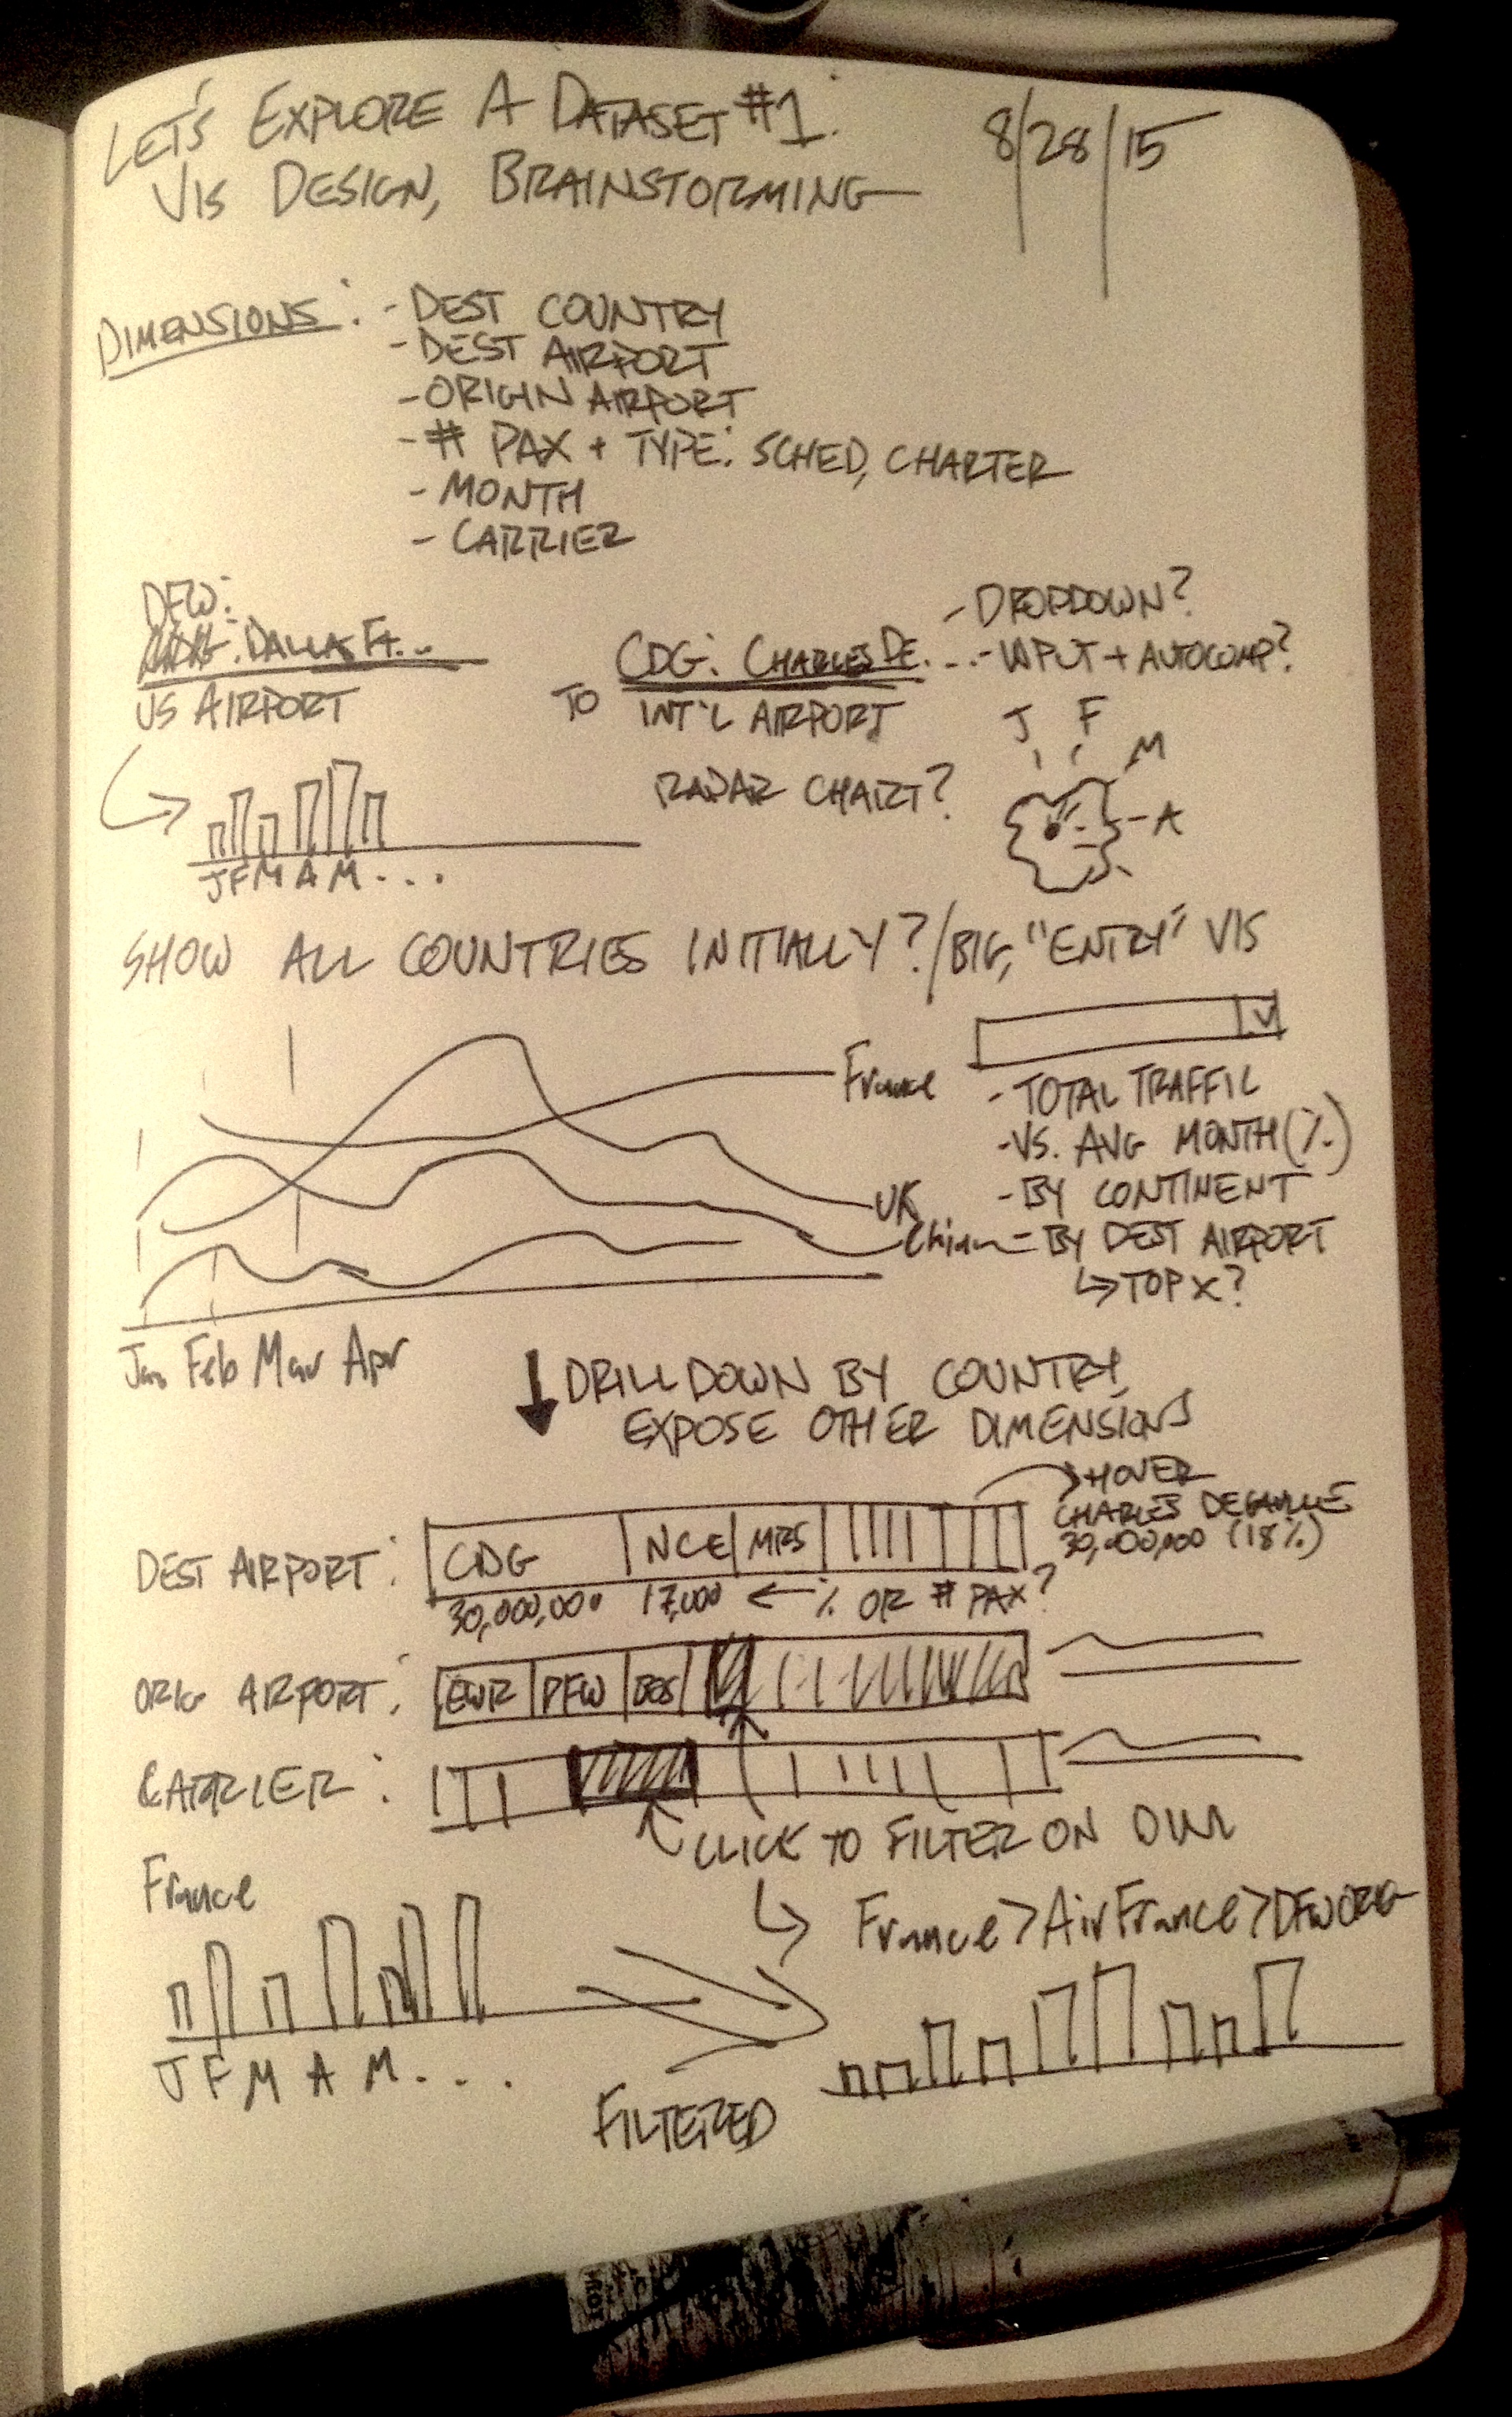 LET'S EXPLORE A DATASET #1:
VIS DESIGN, BRAINSTORMING
8/28/15
DIMENSIONS: - DEST COUNTRY
- DEST AIRPORT
- ORIGIN AIRPORT
- # PAX + TYPE: SCHED, CHARTER
- MONTH
- CARRIER
DFW:
DALLAS FT...
US AIRPORT
TO
CDG: CHARLES DE....
INT'L AIRPORT
- DROPDOWN?
- INPUT + AUTOCOMP?
J F M A M . . .
RADAR CHART?
J F M A
SHOW ALL COUNTRIES INITIALLY?/BIG, "ENTRY" VIS
France
UK
China
- TOTAL TRAFFIC
- VS. AVG MONTH (%)
- BY CONTINENT
- BY DEST AIRPORT
↳ TOP X?
Jan Feb Mar Apr
↓ DRILL DOWN BY COUNTRY,
EXPOSE OTHER DIMENSIONS
→ HOVER
CHARLES DEGAULLE
30,000,000 (18%)
DEST AIRPORT: CDG NCE MRS
30,000,000 17,000 ← % OR # PAX?
ORIG AIRPORT: EWR DFW
CARRIER:
CLICK TO FILTER ON DIM
France
↳ France > AirFrance > DFW ORIG
J F M A M . . .
FILTERED